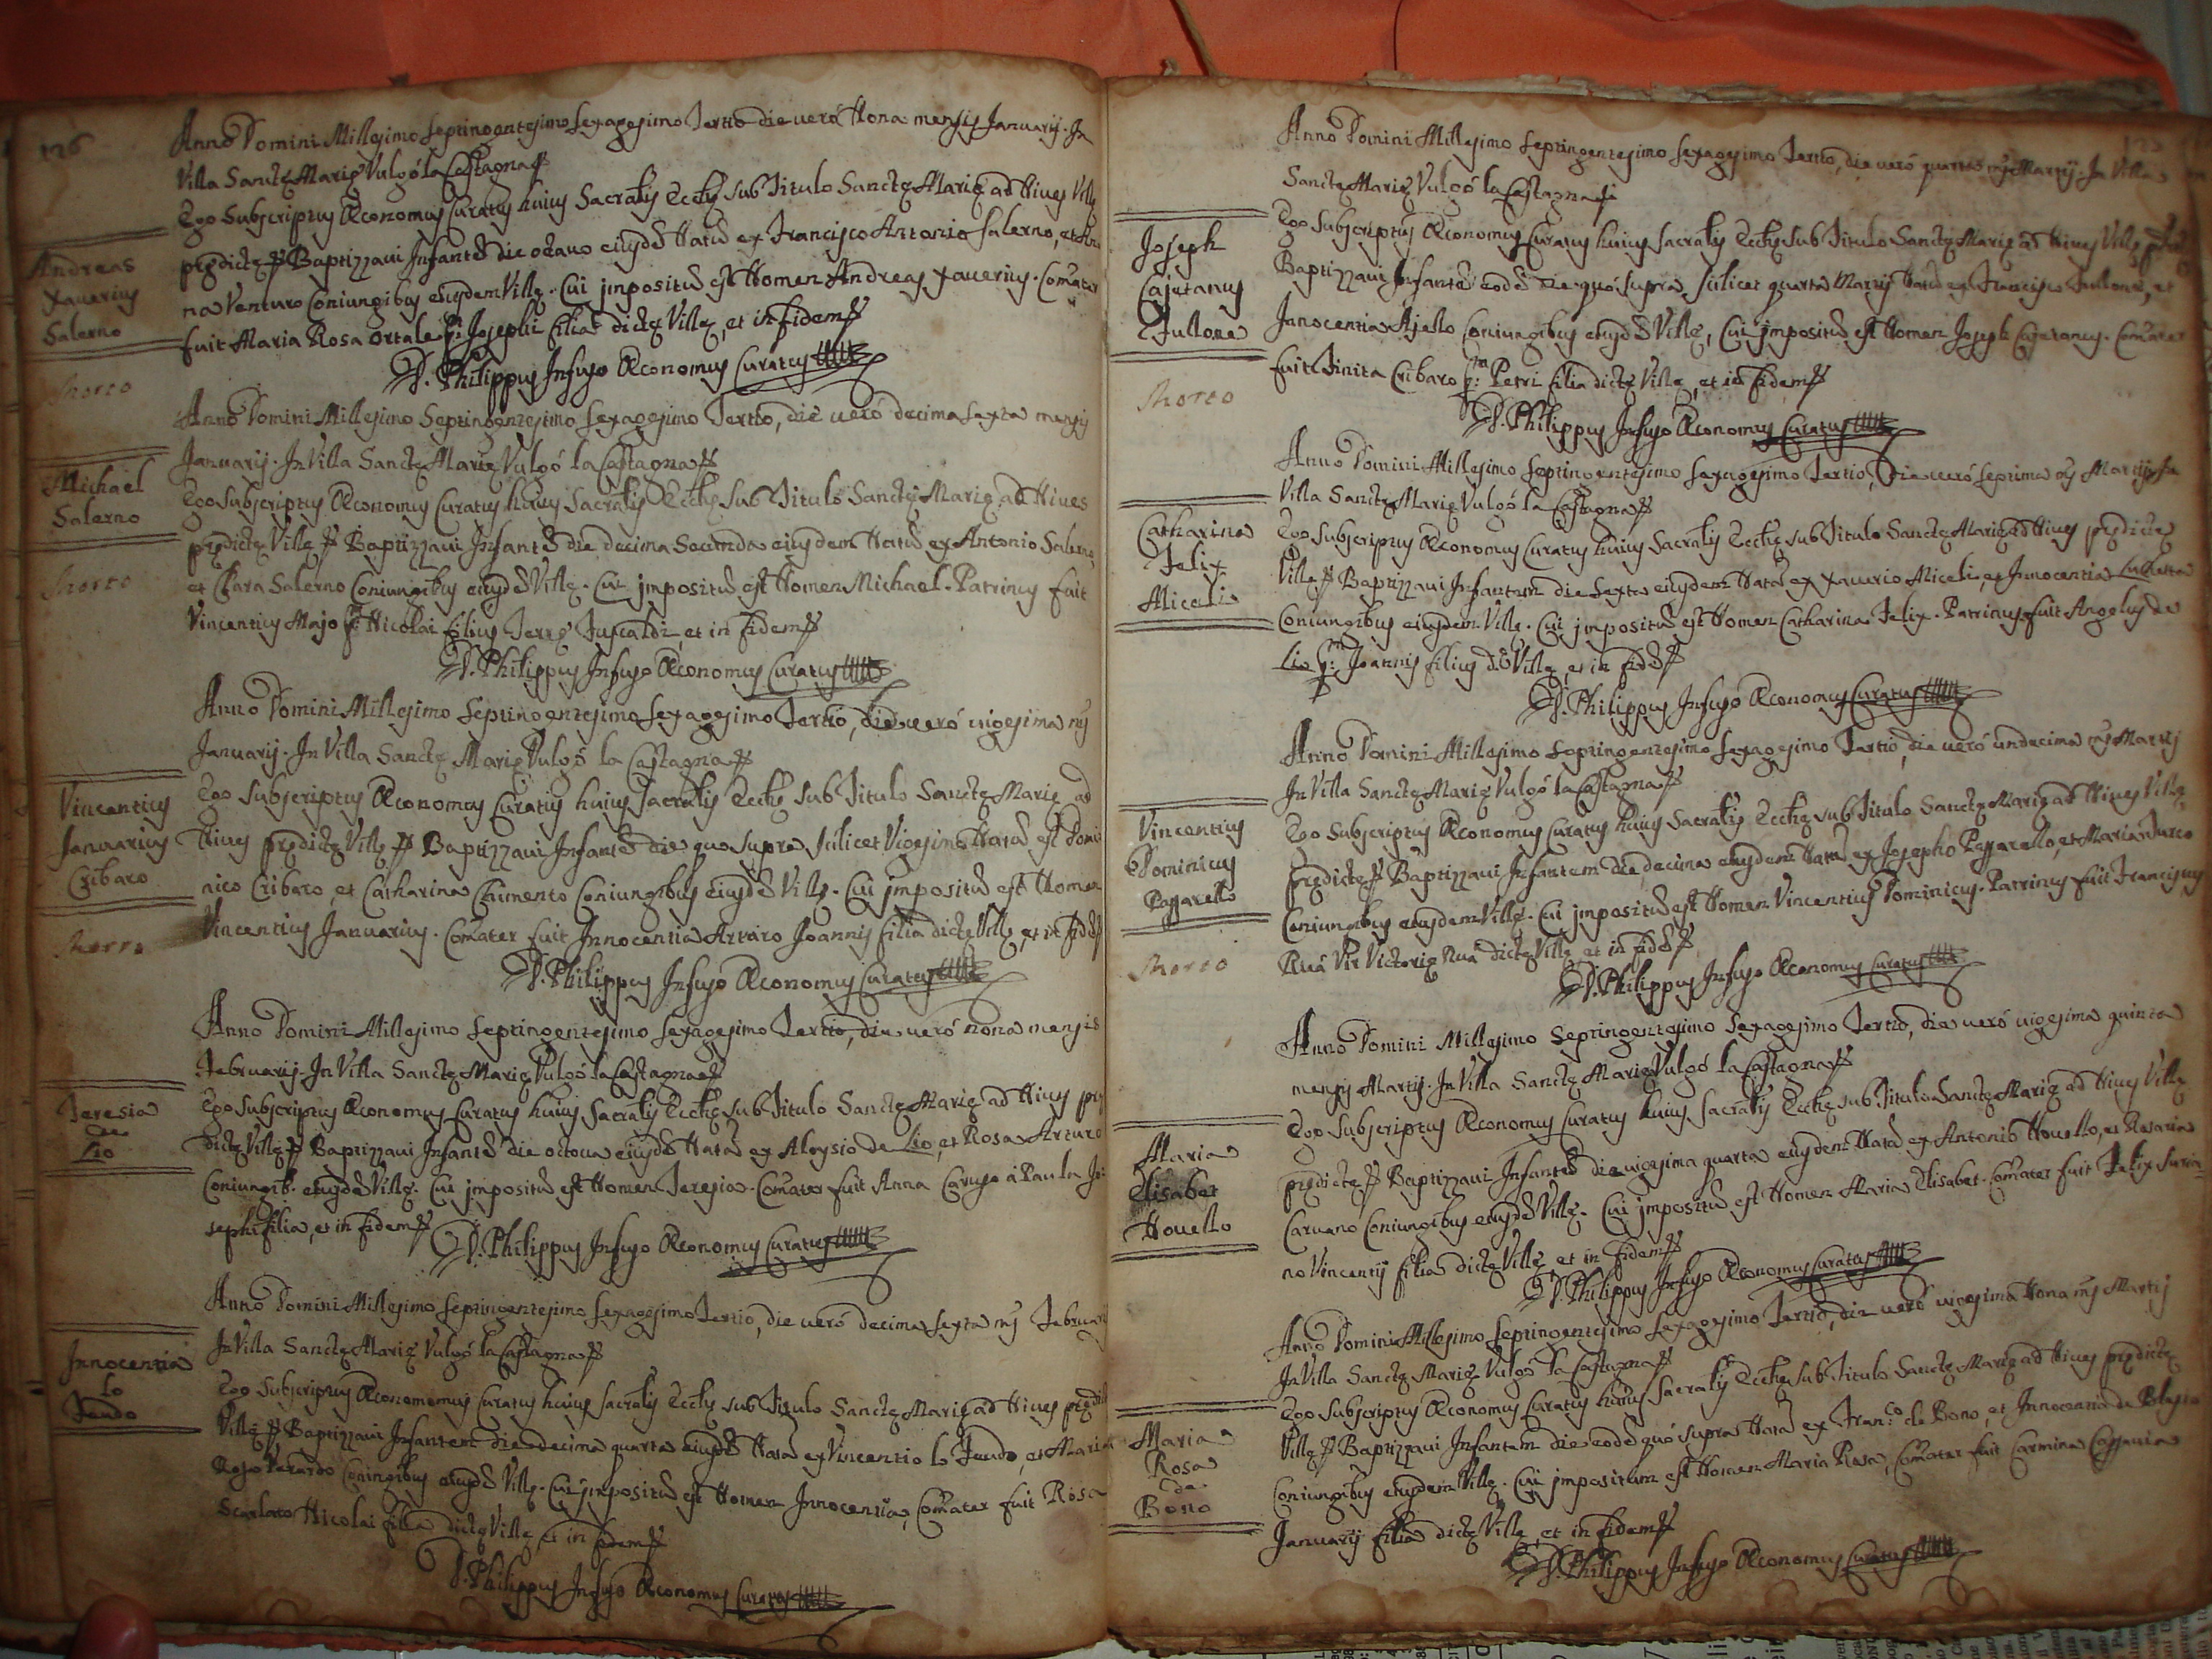 126
Anno Domini Millesimo Septingentesimo Sexagesimo Tertio die verò Nona mensis Januarij. In
Villa Sanctę Marię Vulgò la Castagna
Ego Subscriptus Œconomus Curatus huius Sacralis Eccłię sub Titulo Sanctę Marię ad Nives Villę
prędictę Baptizzavi Infantē die octavo eiusdē Natū ex Francisco Antonio Salerno, et An
na Venturo Coniungibus eiusdem Villę. Cui impositū est Nomen Andreas Xaverius. Com̃ater
fuit Maria Rosa Ortale Josephi filia dictę Villę, et in fidem
D. Philippus Infuso Œconomus Curatus
Andreas
Xaverius
Salerno
Morto
Anno Domini Millesimo Septingentesimo Sexagesimo Tertio, die verò decima sexta mensis
Januarij. In Villa Sanctę Marię Vulgò la Castagna
Ego Subscriptus Œconomus Curatus huius Sacralis Eccłię Sub Titulo Sanctę Marię ad Nives
prędictę Villę Baptizzavi Infantē die decima Secunda eiusdem Natū ex Antonio Salerno
et Clara Salerno Coniungibus eiusdē Villę. Cui impositū est Nomen Michael. Patrinus fuit
Vincentius Majo Nicolai filius Terrę Fuscaldi, et in fidem
D. Philippus Infuso Œconomus Curatus
Michael
Salerno
Morto
Anno Domini Millesimo Septingentesimo Sexagesimo Tertio, die verò vigesima m̃s
Januarij. In Villa Sanctę Marię Vulgò la Castagna
Ego Subscriptus Œconomus Curatus huius Sacralis Eccłię Sub Titulo Sanctę Marię ad
Nives prędictę Villę Baptizzavi Infantē die quo supra scilicet Vigesima Natū est Domi
nico Cribaro, et Catharina Chimento Coniungibus eiusdē Villę. Cui impositū est Nomen
Vincentius Januarius. Com̃ater fuit Innocentia Arturo Joannis filia dictę Villę et in fidē
D. Philippus Infuso Œconomus Curatus
Vincentius
Januarius
Cribaro
Morto
Anno Domini Millesimo Septingentesimo Sexagesimo Tertio, die verò nona mensis
Februarij. In Villa Sanctę Marię Vulgò la Castagna
Ego Subscriptus Œconomus Curatus huius Sacralis Eccłię sub Titulo Sanctę Marię ad Nives prę
dictę Villę Baptizzavi Infantē die octava eiusdē Natā ex Aloysio de Lio, et Rosa Arturo
Coniungib. eiusdē Villę. Cui impositū est Nomen Teresia. Com̃ater fuit Anna Caruso à Paula Jo
sephi filia, et in fidem
D. Philippus Infuso Œconomus Curatus
Teresia
de
Lio
Anno Domini Millesimo Septingentesimo Sexagesimo Tertio, die verò decima sexta m̃s Februarij
In Villa Sanctę Marię Vulgò la Castagna
Ego Subscriptus Œconomus Curatus huius Sacralis Eccłię sub Titulo Sanctę Marię ad Nives prędictę
Villę Baptizzavi Infantem die decima quarta eiusdē Natā ex Vincentio lo Feudo, et Maria
Rosa Coniungibus eiusdē Villę. Cui impositū est Nomen Innocentia, Com̃ater fuit Rosa
Scarlato Nicolai filia dictę Villę, et in fidem
D. Philippus Infuso Œconomus Curatus
Innocentia
lo
Feudo
Anno Domini Millesimo Septingentesimo Sexagesimo Tertio, die verò quarta m̃s Martij. In Villa
Sanctę Marię Vulgò la Castagna
Ego Subscriptus Œconomus Curatus huius Sacralis Eccłię sub Titulo Sanctę Marię ad Nives Villę
Baptizzavi Infantē eodē die quo supra, scilicet quarta Martij Natū ex Francisco Fullone, et
Innocentia Ajello Coniungibus eiusdē Villę, Cui impositū est Nomen Joseph Cajetanus. Com̃ater
fuit Finita Cribaro qm Petri filia dictę Villę, et in fidem
D. Philippus Infuso Œconomus Curatus
Joseph
Cajetanus
Fullone
Morto
Anno Domini Millesimo Septingentesimo Sexagesimo Tertio, Die verò Septima m̃s Martij. In
Villa Sanctę Marię Vulgò la Castagna
Ego Subscriptus Œconomus Curatus huius Sacralis Eccłię sub Titulo Sanctę Marię ad Nives prędictę
Villę Baptizzavi Infantem die Sexta eiusdem Natā ex Xaverio Miceli, et Innocentia
Coniungibus eiusdem Villę. Cui impositū est Nomen Catharina Felix. Patrinus fuit Angelus de
Lio qm Joannis filius d. Villę, et in fidē
D. Philippus Infuso Œconomus Curatus
Catharina
Felix
Miceli
Anno Domini Millesimo Septingentesimo Sexagesimo Tertio, die verò undecima m̃s Martij
In Villa Sanctę Marię Vulgò la Castagna
Ego Subscriptus Œconomus Curatus huius Sacralis Eccłię sub Titulo Sanctę Marię ad Nives Villę
prędictę Baptizzavi Infantem die decima eiusdem Natū ex Josepho Pezzarello, et Maria Turco
Coniungibus eiusdem Villę. Cui impositū est Nomen Vincentius Dominicus. Patrinus fuit Franciscus
Ruà Vir Victorię Ruà dictę Villę et in fidē
D. Philippus Infuso Œconomus Curatus
Vincentius
Dominicus
Pezzarello
Morto
Anno Domini Millesimo Septingentesimo Sexagesimo Tertio, die verò vigesima quinta
mensis Martij. In Villa Sanctę Marię Vulgò la Castagna
Ego Subscriptus Œconomus Curatus huius Sacralis Eccłię sub Titulo Sanctę Marię ad Nives Villę
prędictę Baptizzavi Infantē die vigesima quarta eiusdem Natā ex Antonio Novello, et Rosaria
Carvano Coniungibus eiusdē Villę. Cui impositū est Nomen Maria Elisabet. Com̃ater fuit Felix Suria
no Vincentij filia dictę Villę et in fidem
D. Philippus Infuso Œconomus Curatus
Maria
Elisabet
Novello
Anno Domini Millesimo Septingentesimo Sexagesimo Tertio, die verò vigesima Nona m̃s Martij
In Villa Sanctę Marię Vulgò la Castagna
Ego Subscriptus Œconomus Curatus huius Sacralis Eccłię sub Titulo Sanctę Marię ad Nives prędictę
Villę Baptizzavi Infantem die eodē quo supra Natā ex Fran.co de Bono, et Innocentia de Blasio
Coniungibus eiusdem Villę. Cui impositum est Nomen Maria Rosa, Com̃ater fuit Carmina
Januarij filia dictę Villę, et in fidem
D. Philippus Infuso Œconomus Curatus
Maria
Rosa
de
Bono